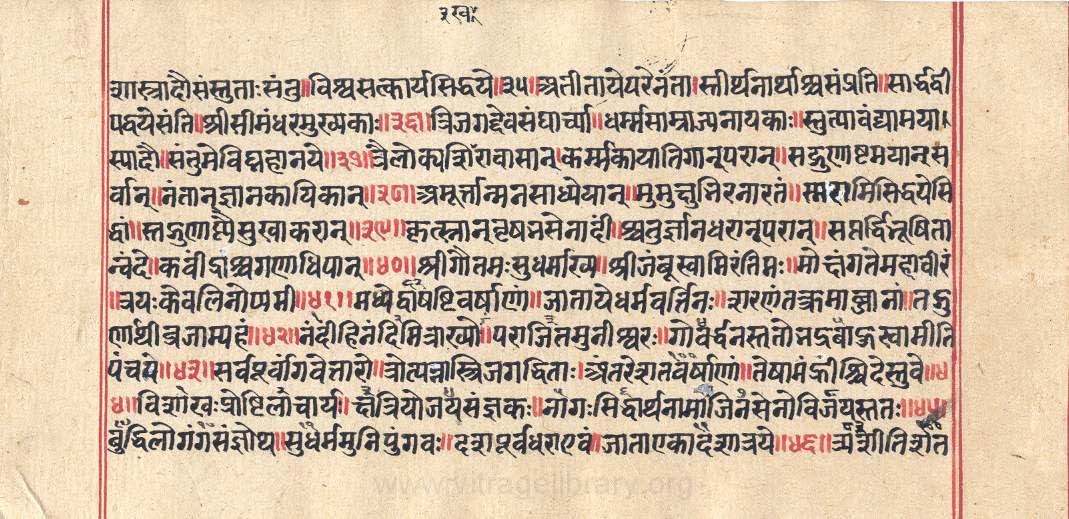 ३ख॰
शास्त्रादौसंस्तुताःसंतु॥विश्वसत्कार्यसिद्धये॥३५॥अतीतायेपरेनंता।स्तीर्थनाथाश्चसंप्रति॥सार्द्धद्वी
पद्वयेसंति॥श्रीसीमंधरमुख्यकाः॥३६॥त्रिजगद्देवसंघार्च्या॥धर्म्मसाम्राज्यनायकाः॥स्तुत्यावंद्यामया।
स्यादौ॥संतुमेविघ्नहानये॥३७॥त्रैलोक्यशिरावासान्।कर्म्मकायातिगान्परान्॥सद्गुणाष्टमयान्स
र्वान्॥नंतान्ज्ञानकायिकान्॥३८॥अमूर्त्तान्मनसाध्येयान्॥मुमुक्षुभिरनारतं॥स्मरामिसिद्धयेसि
द्धां॥स्तद्गुणाप्त्यैसुखाकरान्॥३९॥कृत्स्नान्वृषभसेनादीं॥श्चतुर्ज्ञानधरान्परान्॥सप्तर्द्धिभूषिता
न्वंदे॥कवींद्रांश्चगणाधिपान्॥४०॥श्रीगौतमःसुधर्माख्य॥श्रीजंबूस्वामिरंतिमः॥मोक्षंगतेमहावीरं
॥त्रयःकेवलिनोप्यमी॥४१॥मध्येद्वाषष्टिवर्षाणां॥जातायेधर्मवर्त्तिनः॥शरणंतत्क्रमाब्जानां॥तद्गु
णार्थीव्रजाम्यहं॥४२॥नंदीहिनंदिमित्राख्यो॥पराजितमुनीश्वरः॥गोवर्द्धनस्ततोभद्रबाहुस्वामीति
पंचमे॥४३॥सर्वपूर्वांगवेत्तारो॥त्रोत्पन्नास्त्रिजगद्धिताः।अंतरेशतवर्षाणां॥तेषामंह्रीश्चिदेस्तुवे॥४
४॥विशाखःप्रोष्टिलाचार्य॥क्षत्रियोजयसंज्ञकः॥नागःसिद्धार्थनामाजिनसेनोविजयस्ततः॥४५॥
बुद्धिलोगंगसंज्ञोथ॥सुधर्ममुनिपुंगवः॥दशपूर्वधराएवं।जाताएकादशात्रये॥४६॥त्र्यशीतिशत
www.vitragelibrary.org